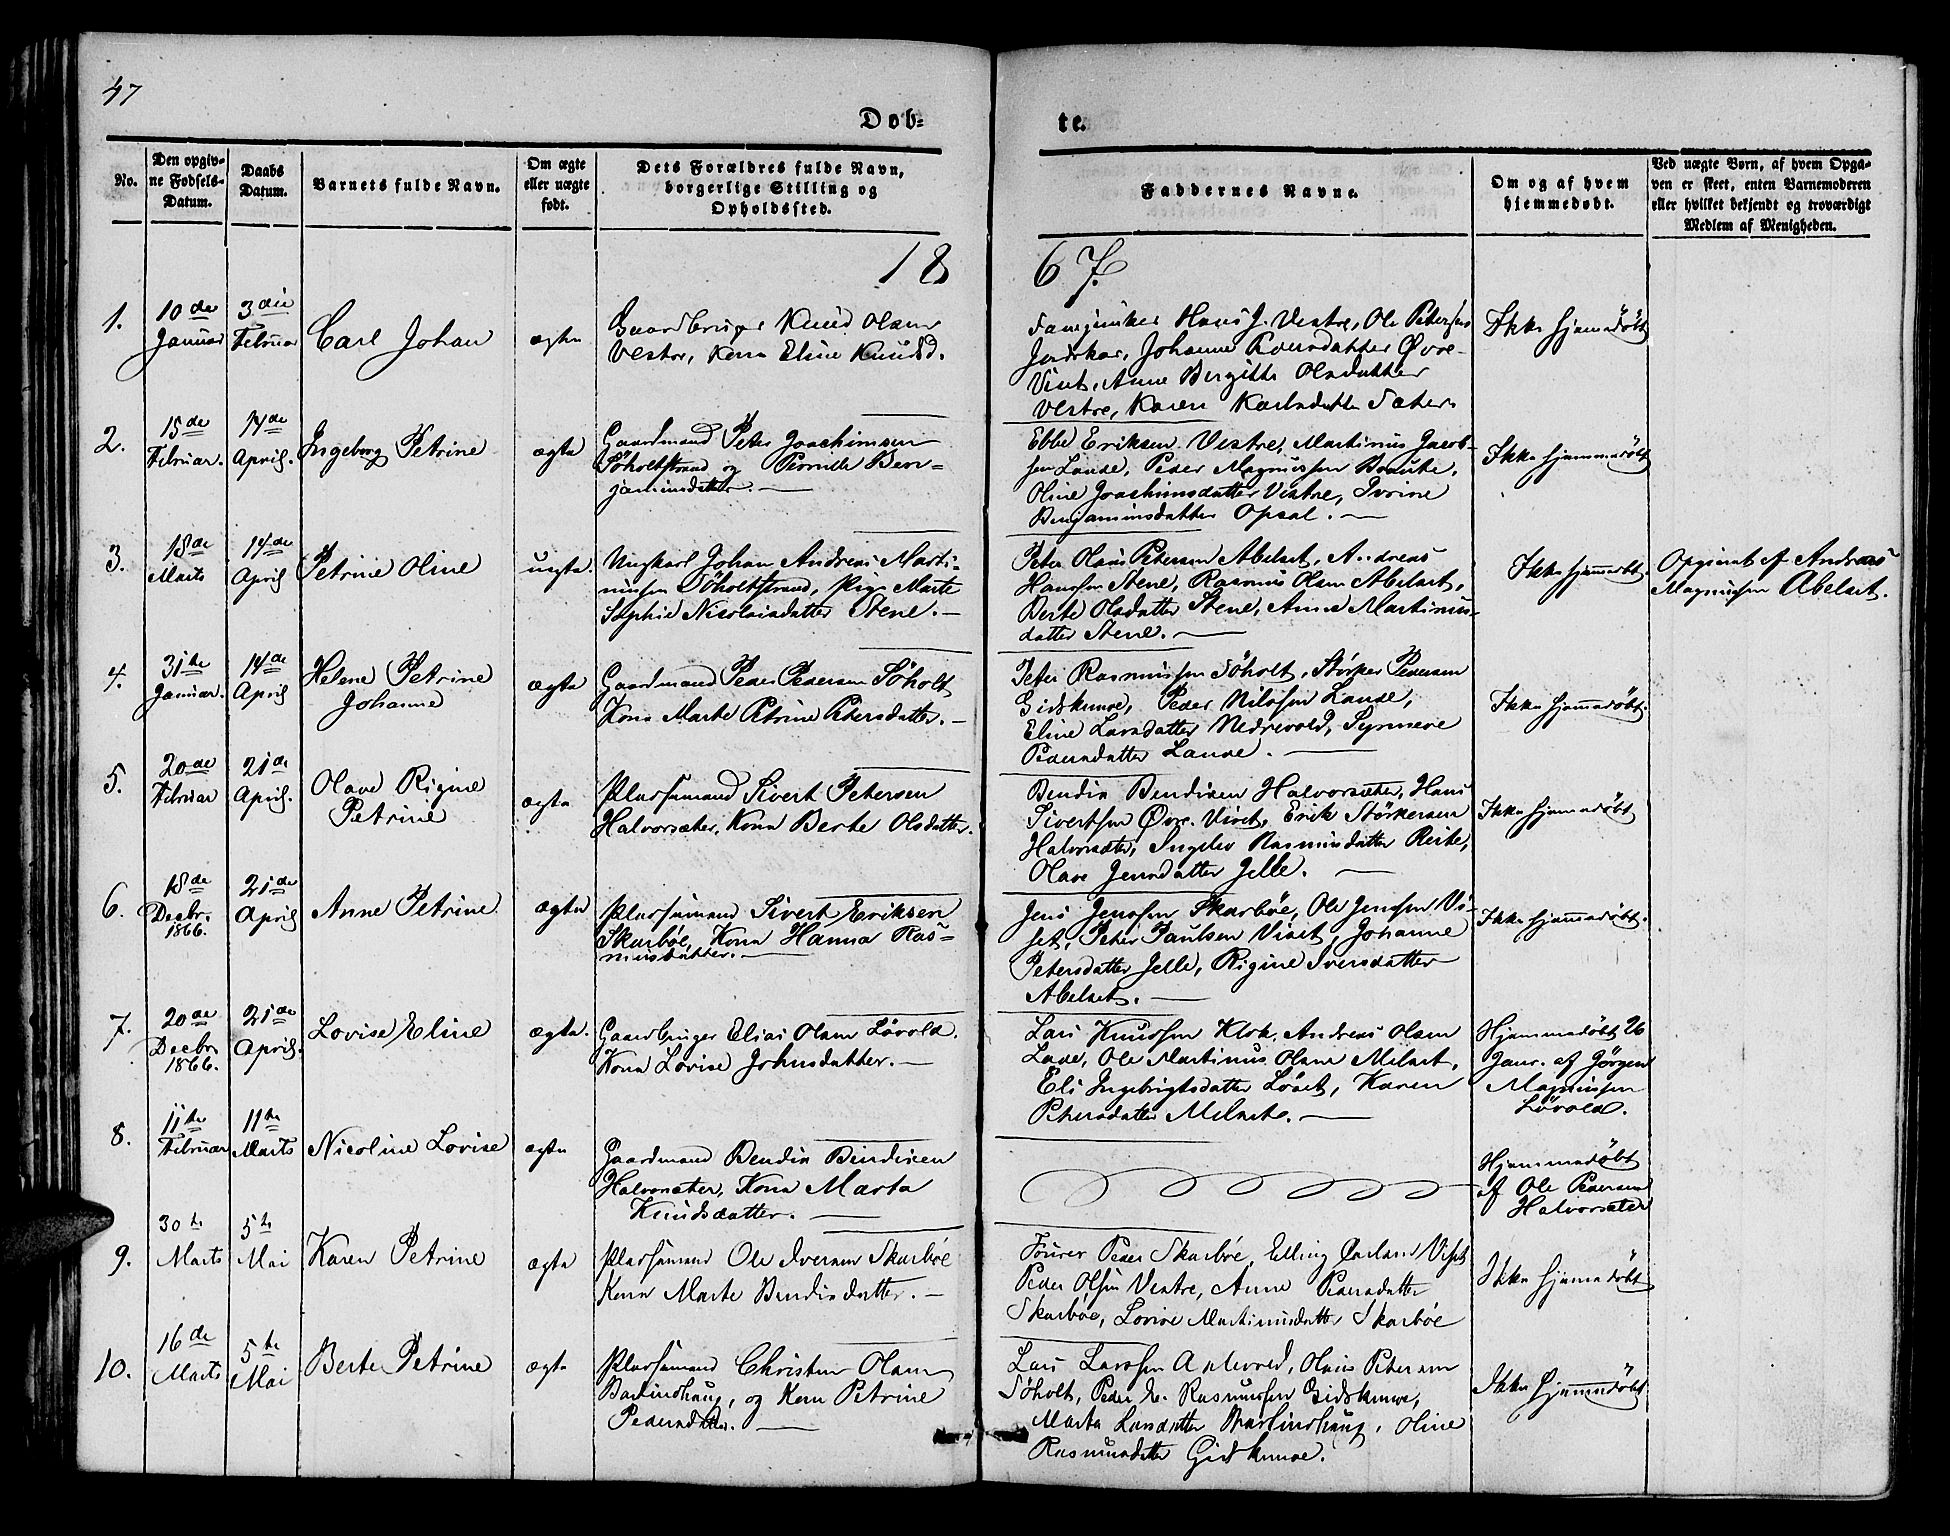 47
Døb-
te.
No.
Den opgiv-
ne Fødsels-
Datum.
Daabs
Datum.
Barnets fulde Navn.
Om ægte
eller uægte
født.
Dets Forældres fulde Navn,
borgerlige Stilling og
Opholdssted.
Faddernes Navne.
Om og af hvem
hjemmedøbt.
Ved uægte Børn, af hvem Opga-
ven er skeet, enten Barnemoderen
eller hvilket bekjendt og troværdigt
Medlem af Menigheden.
18
67.
1.
10de
Januar
3die
Februar
Carl Johan
ægte
Gaardbruger Knud Olsen
Vestre, Kone Eline Knudsd.
Hans J. Vestre, Ole Petersen
Johanne Øvre-
Viset, Anne Birgitte Olsdatter
Vestre, Karen Karlsdatter Sæter.
Ikke hjemmedöbt
2.
15de
Februar.
14de
April.
Ingeborg Petrine
ægte
Gaardmand Peter Joachimsen
Söholtstrand og Pernille Ben-
jaminsdatter.
Ebbe Eriksen Vestre, Martinus Jacob-
sen Lande, Peder Magnussen Braute,
Oline Joachimsdatter Vestre, Ivrine
Benjaminsdatter Opsal.
Ikke hjemmedöbt
3.
18de
Marts
14de
April
Petrine Oline
uægte.
Ungkarl Johan Andreas Marti-
nusen Söholtstrand, Pige Marte
Sophie Nicolaisdatter Stene.
Peter Olaus Petersen Abelset, Andreas
Hansen Stene, Rasmus Olsen Abelset,
Berte Olsdatter Stene, Anne Martinus-
datter Stene.
Ikke hjemmedöbt.
Opgivet af Andreas
Magnussen Abelset.
4.
31te
Januar.
14de
April
Helene Petrine
Johanne
ægte
Gaardmand Peder Pedersen Söholt
Kone Marte Petrine Petersdatter.
Peter Rasmussen Söholt, Störker Pedersen
Gidskemoe, Peder Nilssen Lande,
Eline Larsdatter Nedrevold, Synneve
Pedersdatter Lande.
Ikke hjemmedöbt.
5.
20de
Februar
21de
April.
Olave Rigine
Petrine
ægte
Pladsemand Sivert Petersen
Halvorsæter, Kone Berte Olsdatter.
Bendix Bendixen Halvorsæter, Hans
Sivertsen Øvre Viset, Erik Störkersen
Halvorsæter, Ingelev Rasmusdatter Reite,
Olave Jensdatter Jelle.
Ikke hjemmedöbt
6.
18de
Decbr.
1866.
21de
April
Anne Petrine
ægte
Pladsemand Sivert Eriksen
Skarböe, Kone Hanna Ras-
musdatter.
Jens Jenssen Skarböe, Ole Jenssen Vi-
set, Peter Paulsen Viset, Johanne
Petersdatter Jelle, Rigine Iversdatter
Abelset.
Ikke hjemmedöbt.
7.
20de
Decbr.
1866.
21de
April.
Lovise Eline
ægte.
Gaardbruger Elias Olsen Lövold.
Kone Lovise Johnsdatter.
Lars Knudsen Klok, Andreas Olsen
Lade, Ole Martinus Olsen Melset,
Eli Ingebrigtsdatter Löset, Karen
Petersdatter Melset.
Hjemmedöbt 26
Janr. af Jörgen
Magnussen
Lövold.
8.
11te
Februar
11te
Marts
Nicoline Lovise
ægte
Gaardmand Bendix Bendixen
Halvorsæter, Kone Marta
Knudsdatter.
Hjemmedöbt
af Ole Pedersen
Halvorsæter
9.
30te
Marts
5te
Mai
Karen Petrine
ægte
Pladsemand Ole Iversen Skarböe
Kone Marte Bendixdatter.
Fourer Peder Skarböe, Elling Viset
Peder Olsen Vestre, Anne Pedersdatter
Skarböe, Lovise Martinusdatter Skarböe
Ikke hjemmedöbt
10.
16de
Marts
5te
Mai
Berte Petrine
ægte
Pladsemand Christen Olsen
Barlindhaug, og Kone Petrine
Pedersdatter.
Lars Larssen Olaus Petersen
Söholt, Peder Rasmussen Gidskemoe,
Marta Larsdatter Barlindhaug, Oline
Rasmusdatter Gidskemoe.
Ikke hjemmedöbt